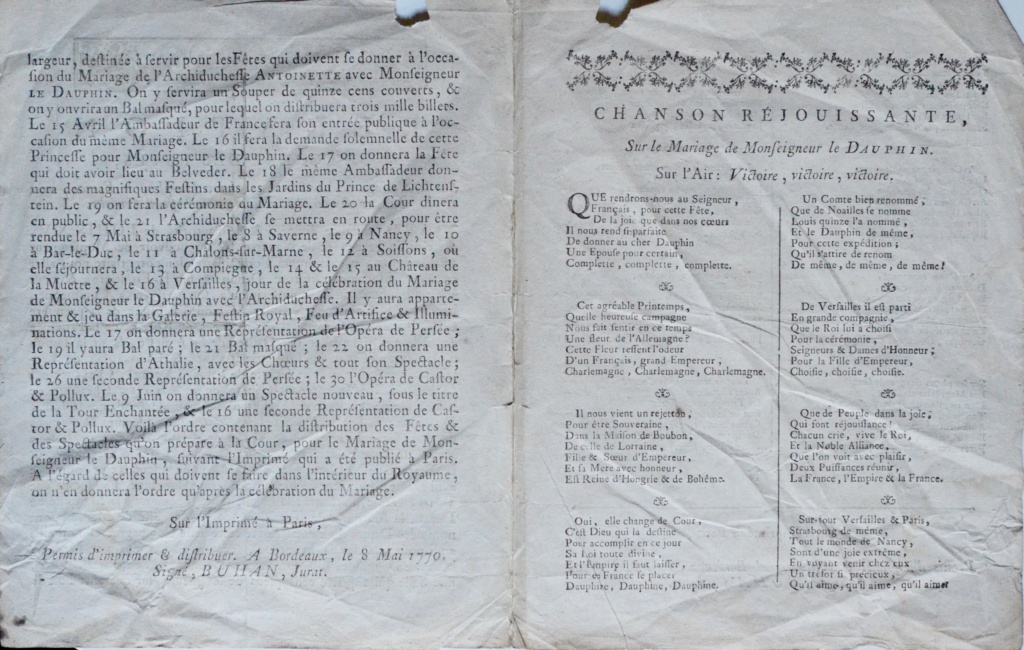 largeur, destinée à servir pour les Fêtes qui doivent se donner à l'occa-
sion du Mariage de l'Archiduchesse ANTOINETTE avec Monseigneur
LE DAUPHIN. On y servira un Souper de quinze cens couverts, &
on y ouvrira un Bal masqué, pour lequel on distribuera trois mille billets.
Le 15 Avril l'Ambassadeur de France fera son entrée publique à l'oc-
casion du même Mariage. Le 16 il fera la demande solemnelle de cette
Princesse pour Monseigneur le Dauphin. Le 17 on donnera la Fête
qui doit avoir lieu au Belveder. Le 18 le même Ambassadeur don-
nera des magnifiques Festins dans les Jardins du Prince de Lichtens-
tein. Le 19 on fera la cérémonie du Mariage. Le 20 la Cour dinera
en public, & le 21 l'Archiduchesse se mettra en route, pour être
rendue le 7 Mai à Strasbourg, le 8 à Saverne, le 9 à Nancy, le 10
à Bar-le-Duc, le 11 à Châlons-sur-Marne, le 12 à Soissons, où
elle séjournera, le 13 à Compiegne, le 14 & le 15 au Château de
la Muette, & le 16 à Versailles, jour de la célébration du Mariage
de Monseigneur le Dauphin avec l'Archiduchesse. Il y aura apparte-
ment & jeu dans la Galerie, Festin Royal, Feu d'Artifice & Illumi-
nations. Le 17 on donnera une Représentation de l'Opéra de Persée;
le 19 il y aura Bal paré; le 21 Bal masqué; le 22 on donnera une
Représentation d'Athalie, avec les Chœurs & tout son Spectacle;
le 26 une seconde Représentation de Persée; le 30 l'Opéra de Castor
& Pollux. Le 9 Juin on donnera un Spectacle nouveau, sous le titre
de la Tour Enchantée, & le 16 une seconde Représentation de Cas-
tor & Pollux. Voilà l'ordre contenant la distribution des Fêtes &
des Spectacles qu'on prépare à la Cour, pour le Mariage de Mon-
seigneur le Dauphin, suivant l'Imprimé qui a été publié à Paris.
A l'égard de celles qui doivent se faire dans l'intérieur du Royaume,
on n'en donnera l'ordre qu'après la célébration du Mariage.
Sur l'Imprimé à Paris,
Permis d'imprimer & distribuer. A Bordeaux, le 8 Mai 1770.
Signé, BUHAN, Jurat.
CHANSON RÉJOUISSANTE,
Sur le Mariage de Monseigneur le DAUPHIN.
Sur l'Air: Victoire, victoire, victoire.
QUE rendrons-nous au Seigneur,
Français, pour cette Fête,
De la joie que dans nos cœurs
Il nous rend si parfaite
De donner au cher Dauphin
Une Epouse pour certain,
Complette, complette, complette.
Cet agréable Printemps,
Quelle heureuse campagne
Nous fait sentir en ce temps
Une fleur de l'Allemagne?
Cette Fleur ressent l'odeur
D'un Français, grand Empereur,
Charlemagne, Charlemagne, Charlemagne.
Il nous vient un rejetton,
Pour être Souveraine,
Dans la Maison de Boubon,
De celle de Lorraine,
Fille & Sœur d'Empereur,
Et sa Mere avec honneur,
Est Reine d'Hongrie & de Bohême.
Oui, elle change de Cour,
C'est Dieu qui la destine
Pour accomplir en ce jour
Sa Loi toute divine,
Et l'Empire il faut laisser,
Pour en France se placer
Dauphine, Dauphine, Dauphine.
Un Comte bien renommé,
Que de Noailles se nomme
Louis quinze l'a nommé,
Et le Dauphin de même,
Pour cette expédition;
Qu'il s'attire de renom
De même, de même, de même!
De Versailles il est parti
En grande compagnie,
Que le Roi lui a choisi
Pour la cérémonie,
Seigneurs & Dames d'Honneur;
Pour la Fille d'Empereur,
Choisie, choisie, choisie.
Que de Peuple dans la joie,
Qui font réjouissance!
Chacun crie, vive le Roi,
Et la Noble Alliance,
Que l'on voit avec plaisir,
Deux Puissances réunir,
La France, l'Empire & la France.
Sur-tout Versailles & Paris,
Strasbourg de même,
Tout le monde de Nancy,
Sont d'une joie extrême,
En voyant venir chez eux
Un trésor si précieux,
Qu'il aime, qu'il aime, qu'il aime!